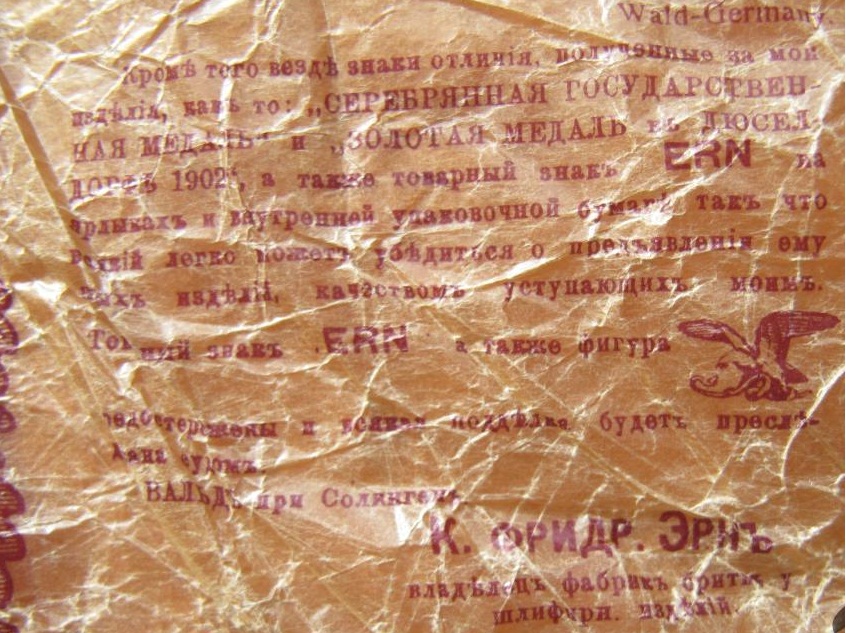 Wald-Germany.
Кромѣ того вездѣ знаки отличія, полученные за мои
издѣлія, какъ то: „СЕРЕБРЯННАЯ ГОСУДАРСТВЕН-
НАЯ МЕДАЛЬ“ и „ЗОЛОТАЯ МЕДАЛЬ въ ДЮСЕЛ-
ДОРФѢ 1902“, а также товарный знакъ ERN на
ярлыкахъ и внутренней упаковочной бумагѣ такъ что
всякій легко можетъ убѣдиться о предъявленіи ему
издѣлій, качествомъ уступающихъ моимъ.
знакъ ERN а также фигура
и всякая поддѣлка будетъ преслѣ-
ВАЛЬДЪ при Солингенъ.
К. ФРИДР. ЭРНЪ
владѣлецъ фабрикъ бритвъ у
шлифурн. издѣлій.